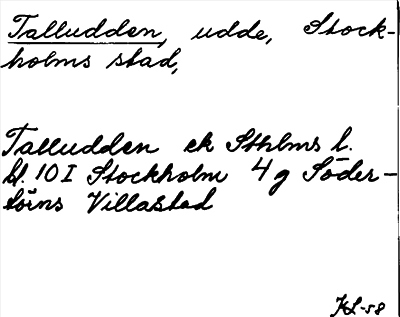 Talludden, udde, Stock-
holms stad,
Talludden ek Sthlms l.
bl. 10 I Stockholm 4 g Söder-
törns Villastad
KL-58